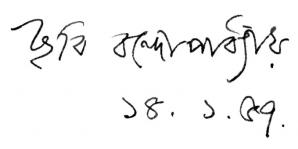 ছবি বন্দ্যোপাধ্যায়
১৪. ১. ৫৭.